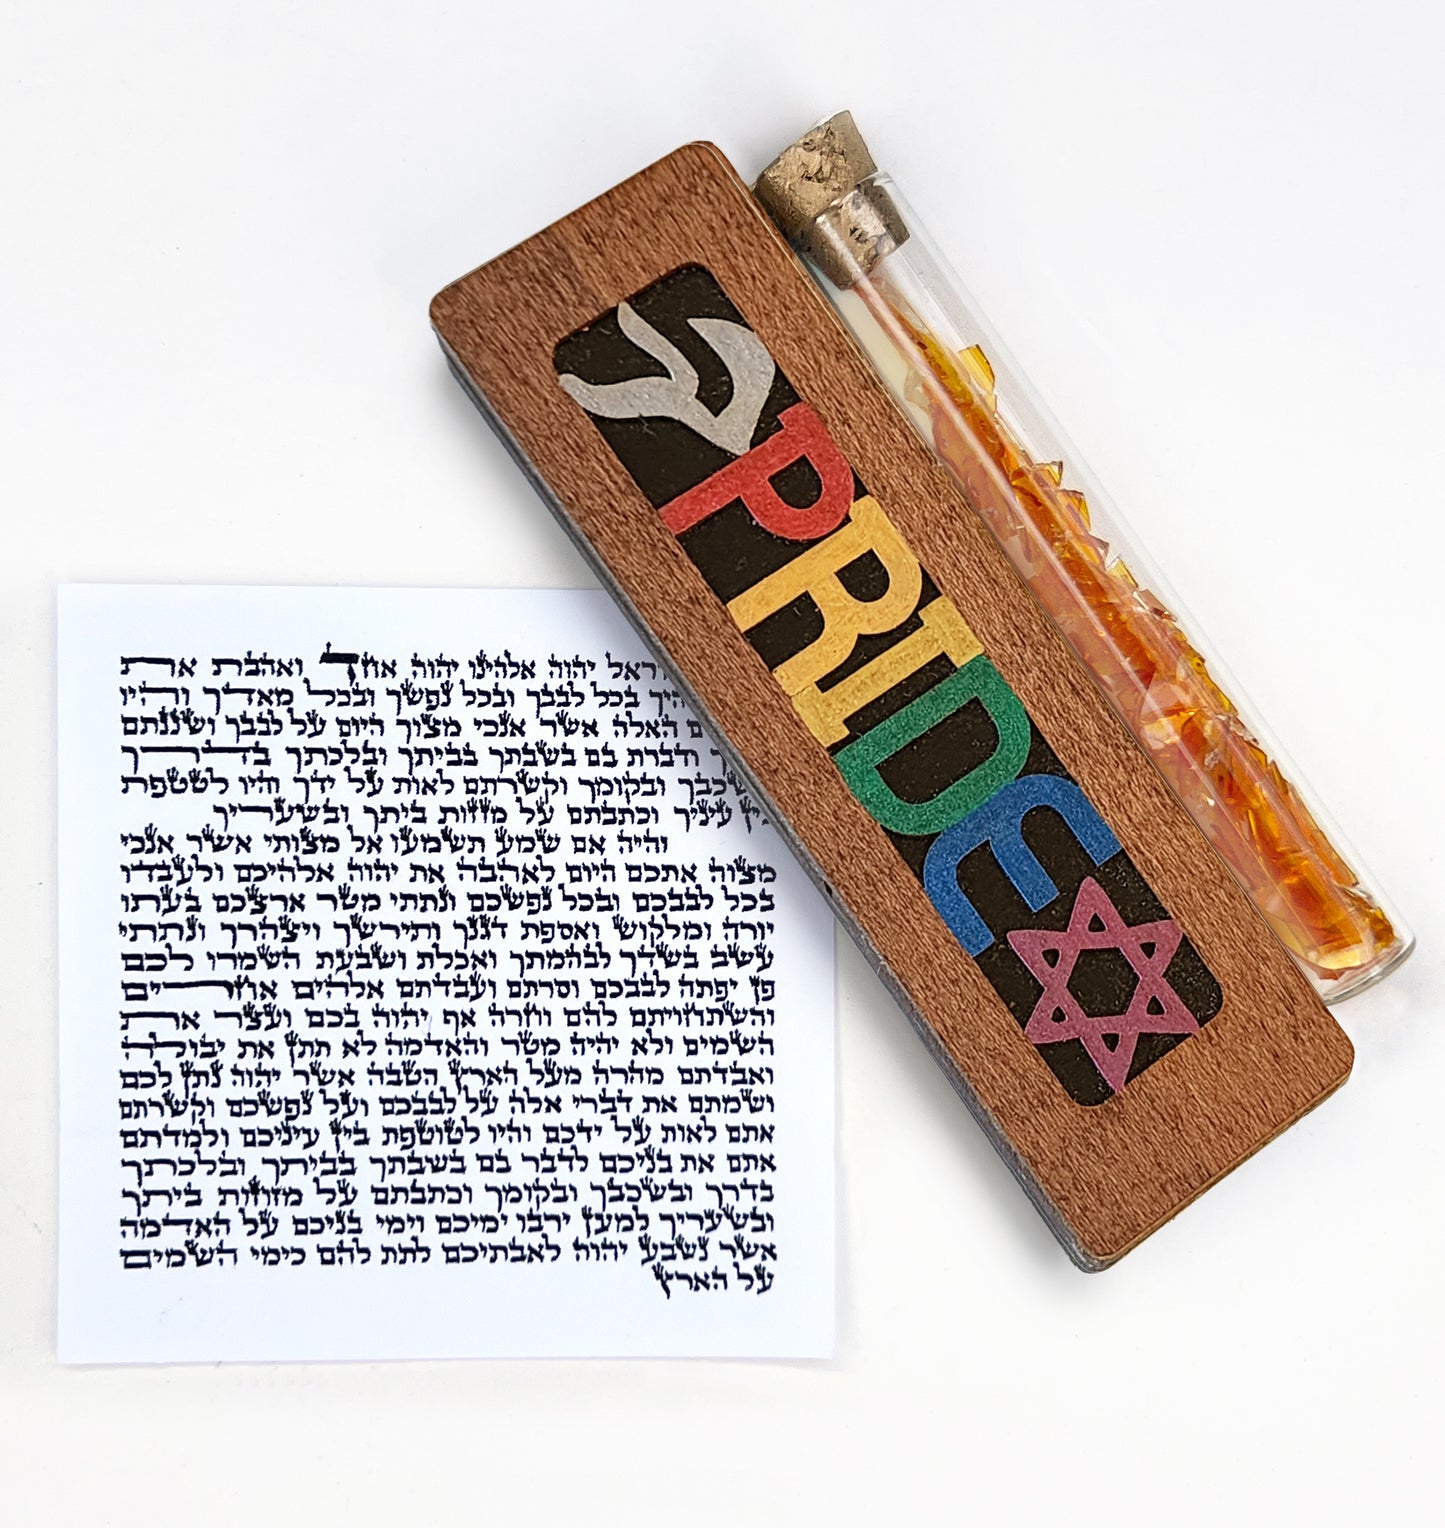 ש
PRIDE
ראל יהוה אלהינו יהוה אחד ואהבת את
היך בכל לבבך ובכל נפשך ובכל מאדך והיו
ם האלה אשר אנכי מצוך היום על לבבך ושננתם
ך ודברת בם בשבתך בביתך ובלכתך בדרך
שכבך ובקומך וקשרתם לאות על ידך והיו לטטפת
בין עיניך וכתבתם על מזזות ביתך ובשעריך
והיה אם שמע תשמעו אל מצותי אשר אנכי
מצוה אתכם היום לאהבה את יהוה אלהיכם ולעבדו
בכל לבבכם ובכל נפשכם ונתתי מטר ארצכם בעתו
יורה ומלקוש ואספת דגנך ותירשך ויצהרך ונתתי
עשב בשדך לבהמתך ואכלת ושבעת השמרו לכם
פן יפתה לבבכם וסרתם ועבדתם אלהים אחרים
והשתחויתם להם וחרה אף יהוה בכם ועצר את
השמים ולא יהיה מטר והאדמה לא תתן את יבולה
ואבדתם מהרה מעל הארץ הטבה אשר יהוה נתן לכם
ושמתם את דברי אלה על לבבכם ועל נפשכם וקשרתם
אתם לאות על ידכם והיו לטוטפת בין עיניכם ולמדתם
אתם את בניכם לדבר בם בשבתך בביתך ובלכתך
בדרך ובשכבך ובקומך וכתבתם על מזוזות ביתך
ובשעריך למען ירבו ימיכם וימי בניכם על האדמה
אשר נשבע יהוה לאבתיכם לתת להם כימי השמים
על הארץ